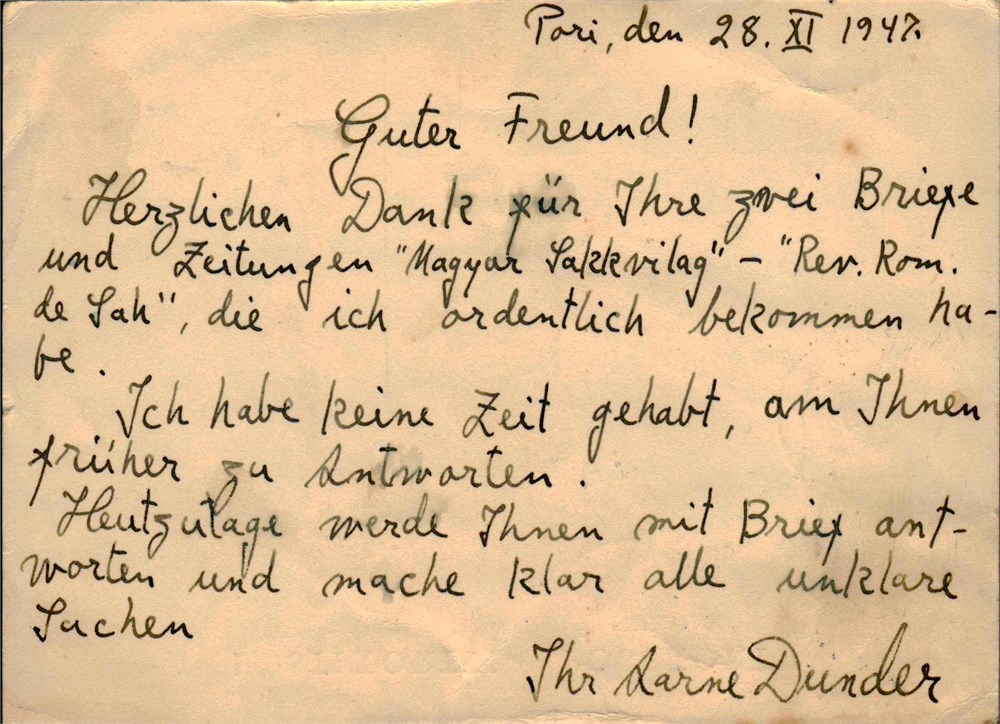 Pori, den 28. XI 1947.
Guter Freund!
Herzlichen Dank für Ihre zwei Briefe
und Zeitungen "Magyar Sakkvilag" - "Rev. Rom.
de Sah", die ich ordentlich bekommen ha-
be.
Ich habe keine Zeit gehabt, am Ihnen
früher zu Antworten.
Heutzutage werde Ihnen mit Brief ant-
worten und mache klar alle unklare
Sachen
Ihr Aarne Dunder